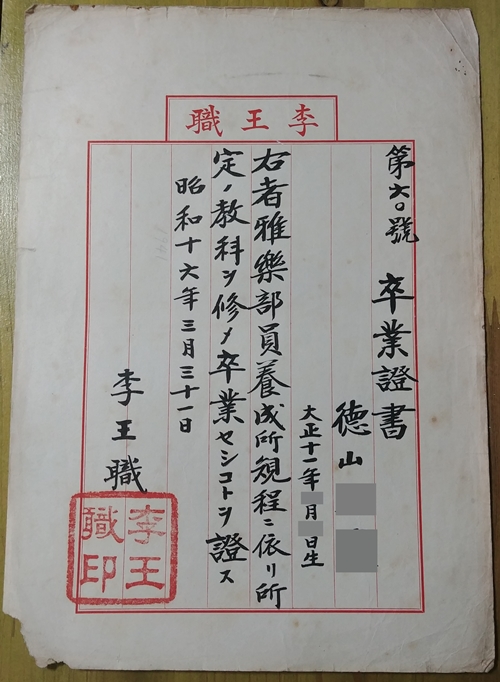 李王職
第六〇號 卒業證書
德山
大正十一年 月 日生
右者雅樂部員養成所規程ニ依リ所
定ノ教科ヲ修メ卒業セシコトヲ證ス
昭和十六年三月三十一日
李王職
李王職印